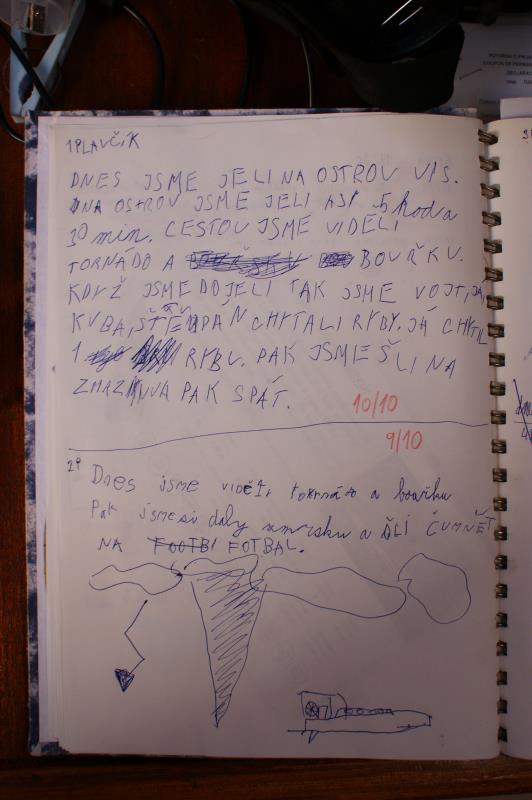 1 PLAVČÍK
DNES JSME JELI NA OSTROV VIS.
NA OSTROV JSME JELI ASI 5 hod a
30 min. CESTOU JSME VIDĚLI
TORNÁDO A BOUŘKU.
KDYŽ JSME DOJELI TAK JSME VOJT, JÁ,
KUBA, ŠTĚPÁN CHYTALI RYBY. JÁ CHYTIL
1 RYBU. PAK JSME ŠLI NA
ZMRZLINU A PAK SPÁT.
10/10
9/10
2P
Dnes jsme viděli tornádo a bouřku
Pak jsme si daly zmrzku a ŠLI ČUMNĚT
NA FOOTB FOTBAL.